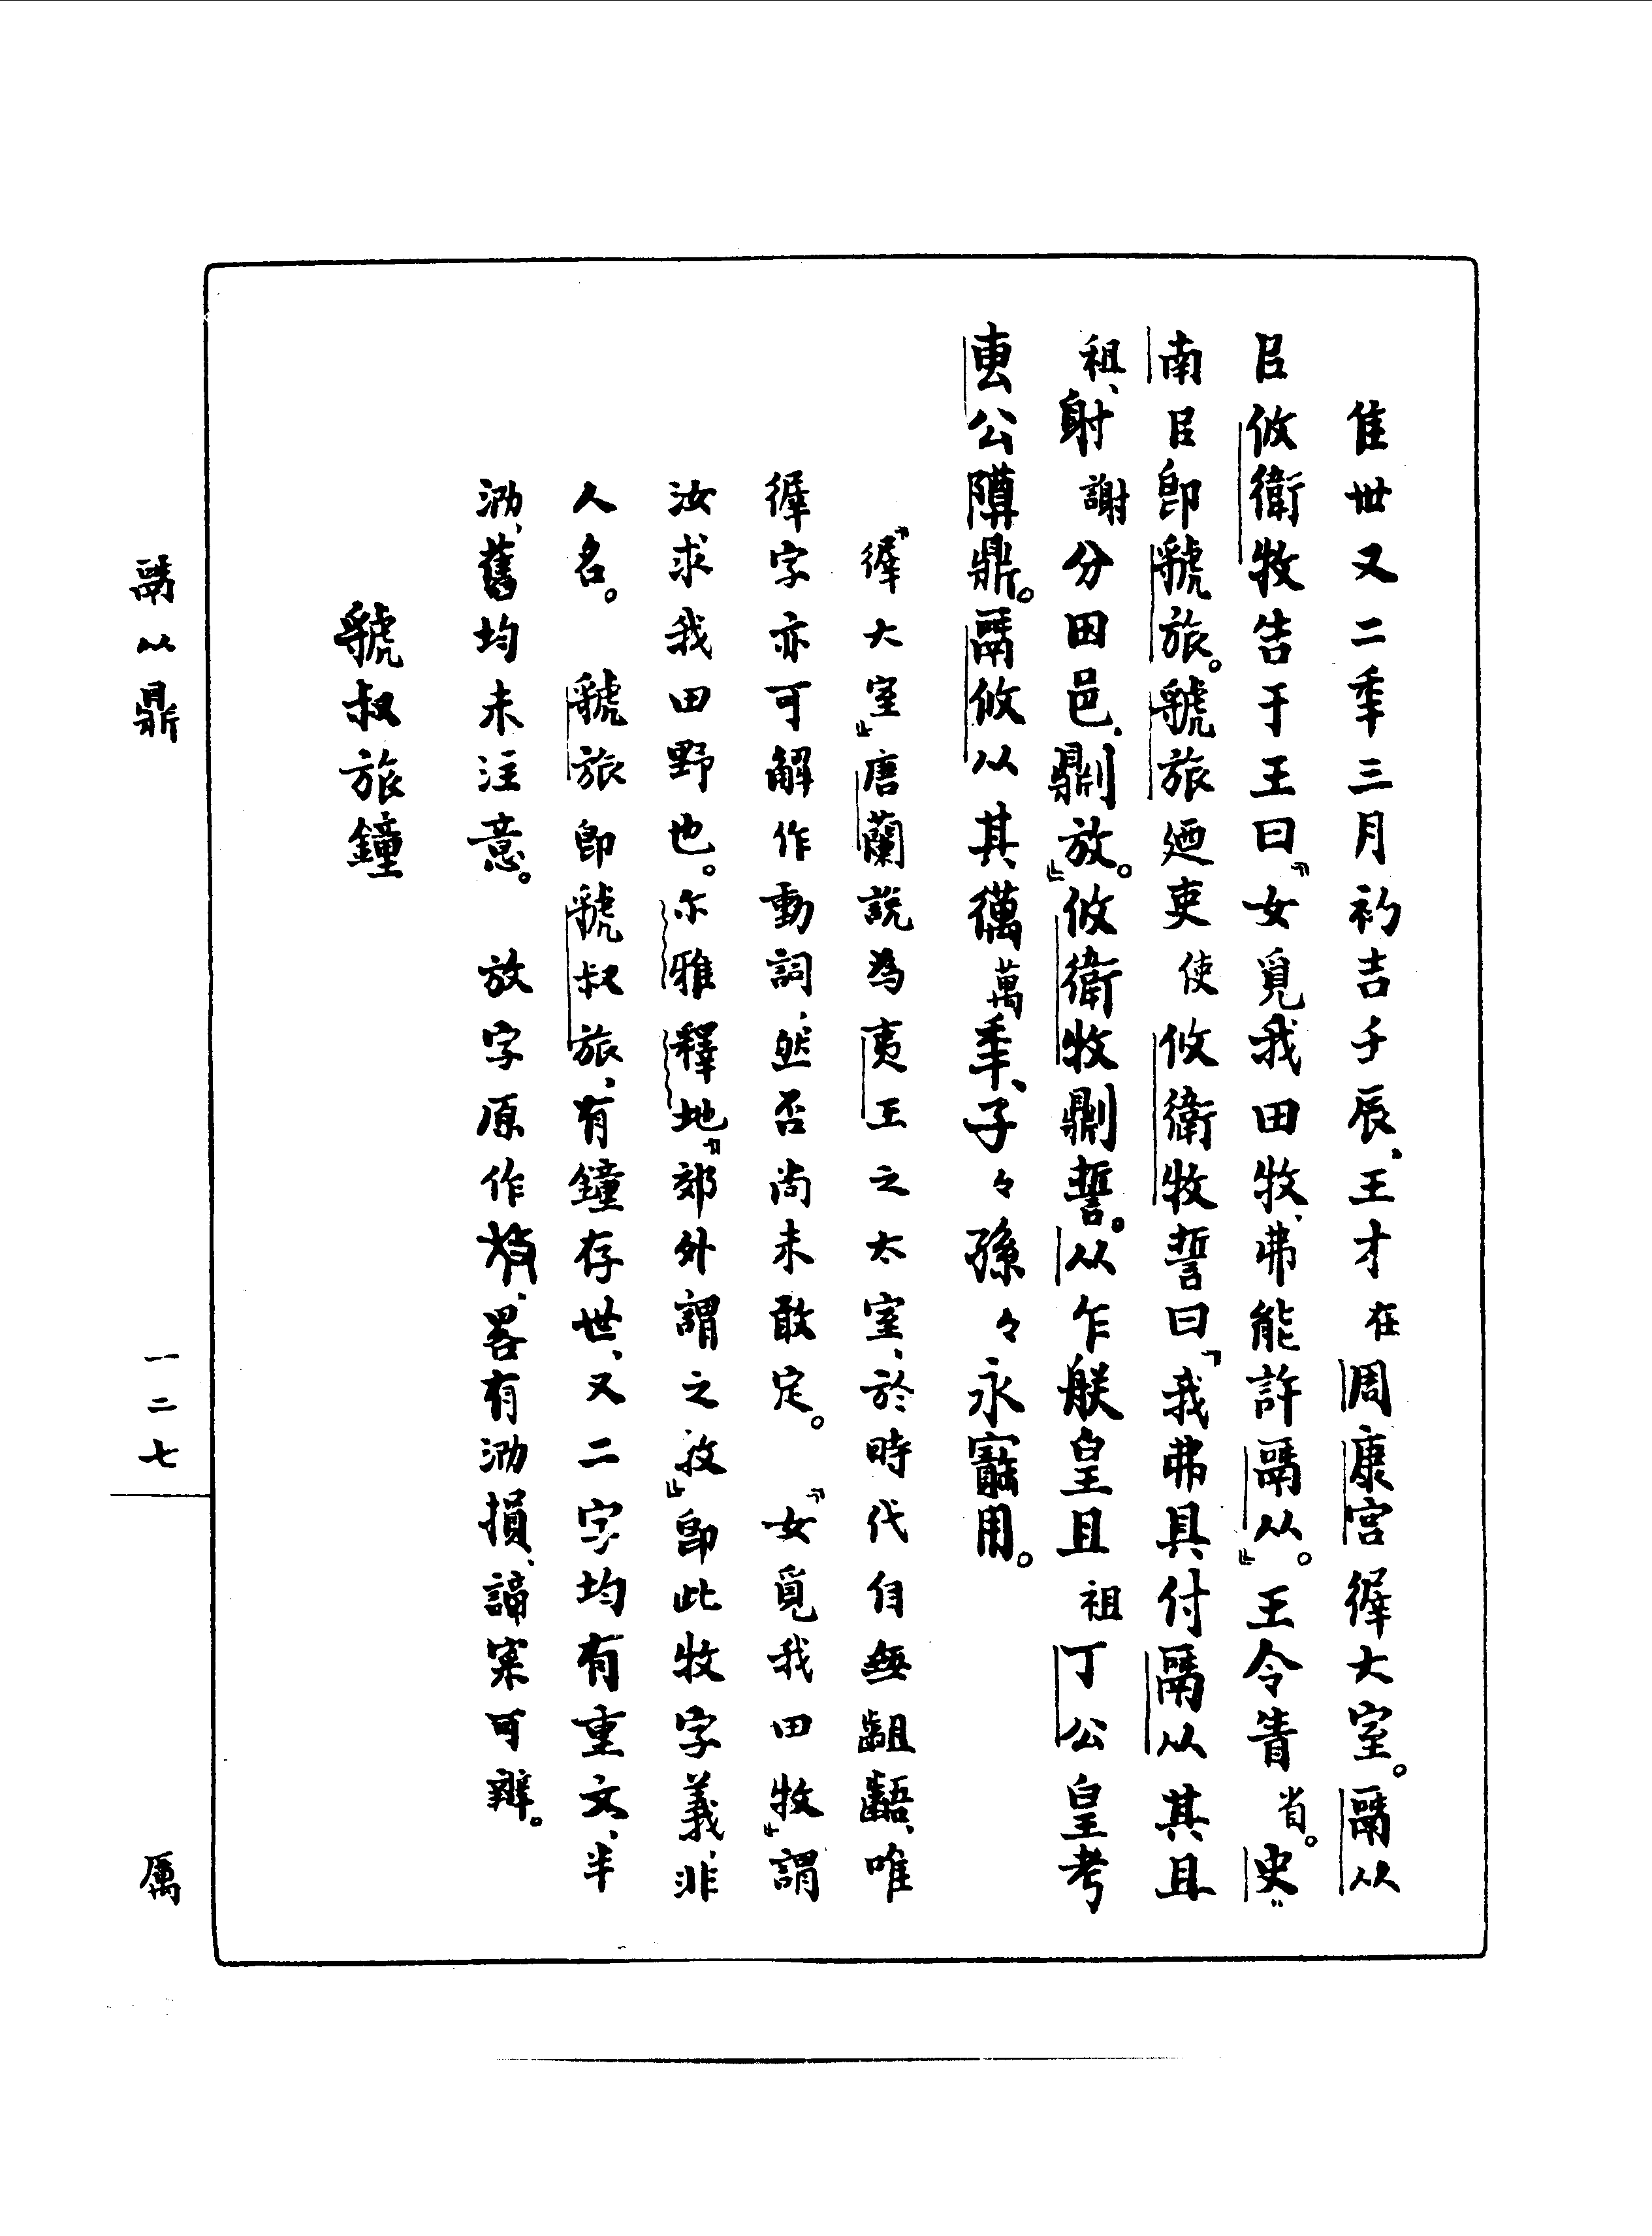 隹卅又二年三月初吉壬辰、王才在周康宮徲大室。䰜从
㠯攸衛牧告于王曰『女覓我田牧、弗能許䰜从』。王令眚省。史
南㠯即虢旅。虢旅廼吏使攸衛牧誓曰『我弗具、付䰜从其且
祖、射謝分田邑、劓放』。攸衛牧劓誓。从乍朕皇且祖丁公皇考
叀公䵼鼎。䰜攸从其邁萬年、子々孫々永寶用。
『徲大室』唐蘭説為夷王之太室、於時代自無齟齬、唯
徲字亦可解作動詞、然否尚未敢定。『女覓我田牧』謂
汝求我田野也。尔雅釋地『郊外謂之牧』即此牧字義、非
人名。虢旅即虢叔旅、有鐘存世、又二字均有重文、半
泐、舊均未注意。放字原作、畧有泐損、諦案可辨。
虢叔旅鐘
䰜从鼎
一二七
厲